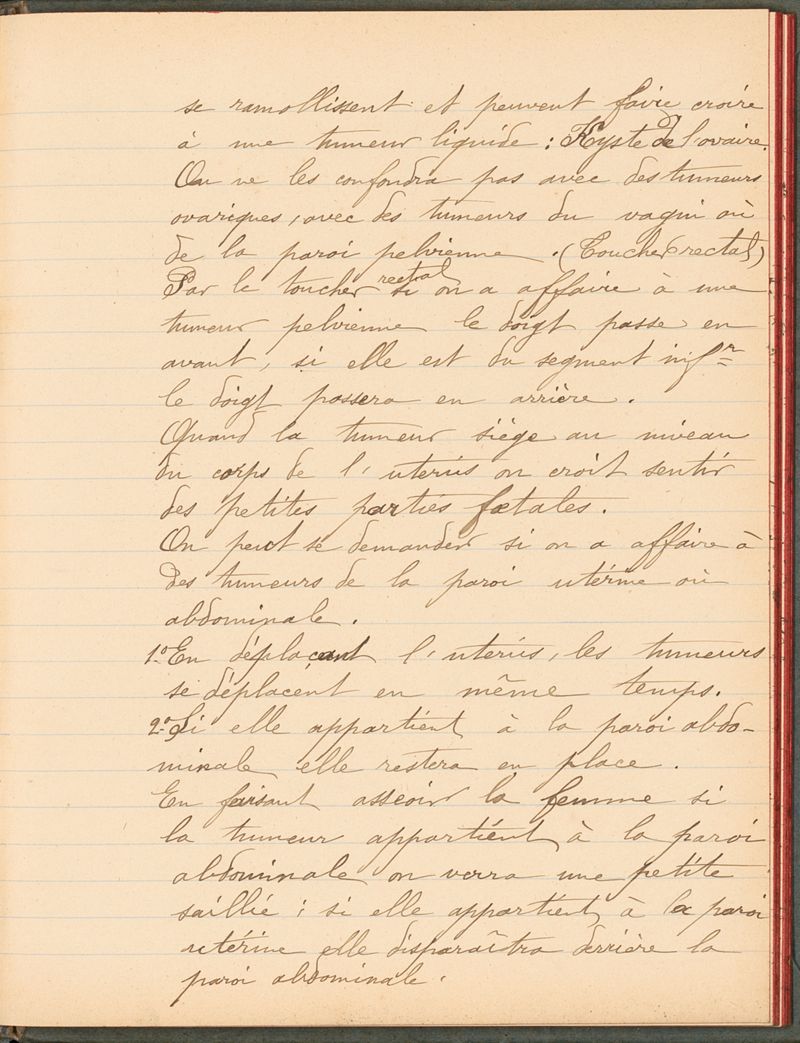 se ramollissent et peuvent faire croire
à une tumeur liquide : Kyste de l'ovaire.
On ne les confondra pas avec des tumeurs
ovariques, avec des tumeurs du vagin où
de la paroi pelvienne. (Toucher rectal)
Par le toucher rectal si on a affaire à une
tumeur pelvienne le doigt passe en
avant, si elle est du segment infr
le doigt passera en arrière.
Quand la tumeur siège au niveau
du corps de l'uterus on croit sentir
des petites parties fœtales.
On peut se demander si on a affaire à
des tumeurs de la paroi utérine où
abdominale.
1.º En déplaçant l'uterus, les tumeurs
se déplacent en même temps.
2.º Si elle appartient à la paroi abdo-
minale elle restera en place.
En faisant asseoir la femme si
la tumeur appartient à la paroi
abdominale on verra une petite
saillie ; si elle appartient à la paroi
utérine elle disparaîtra derrière la
paroi abdominale.